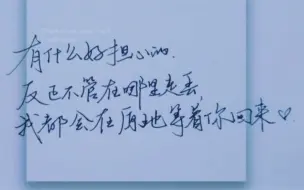 有什么好担心的.
反正不管在哪里走丢,
我都会在原地等着你回来♡